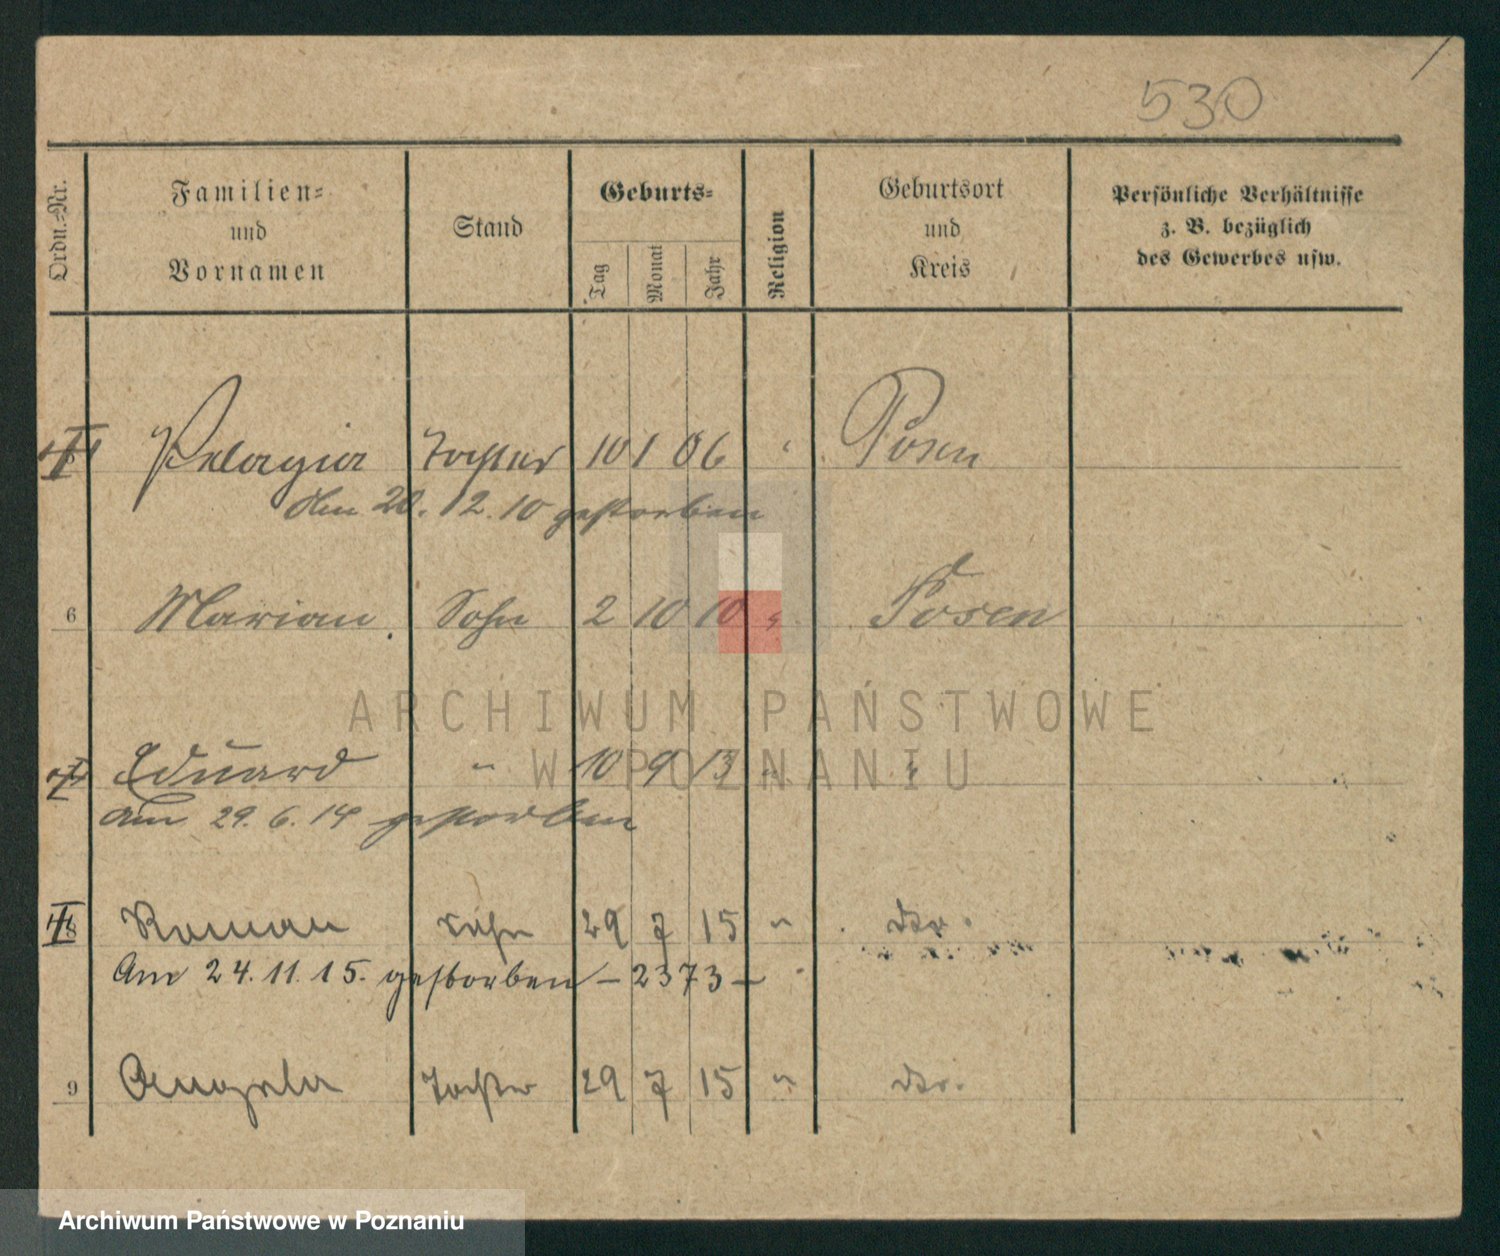 530
Ordn.-Nr.
Familien-
und
Vornamen
Stand
Geburts-
Tag
Monat
Jahr
Religion
Geburtsort
und
Kreis
Persönliche Verhältnisse
z. B. bezüglich
des Gewerbes usw.
Pelagia Tochter 10 1 06 " Posen
Am 20. 12. 10 gestorben
6 Marian. Sohn 2 10 10 " Posen
ARCHIWUM PAŃSTWOWE
W POZNANIU
Eduard " 10 9 13 " "
Am 29. 6. 14 gestorben
8 Roman Sohn 29 7 15 " do.
Am 24. 11. 15. gestorben – 2373 –
9 Angela Tochter 29 7 15 " do.
Archiwum Państwowe w Poznaniu